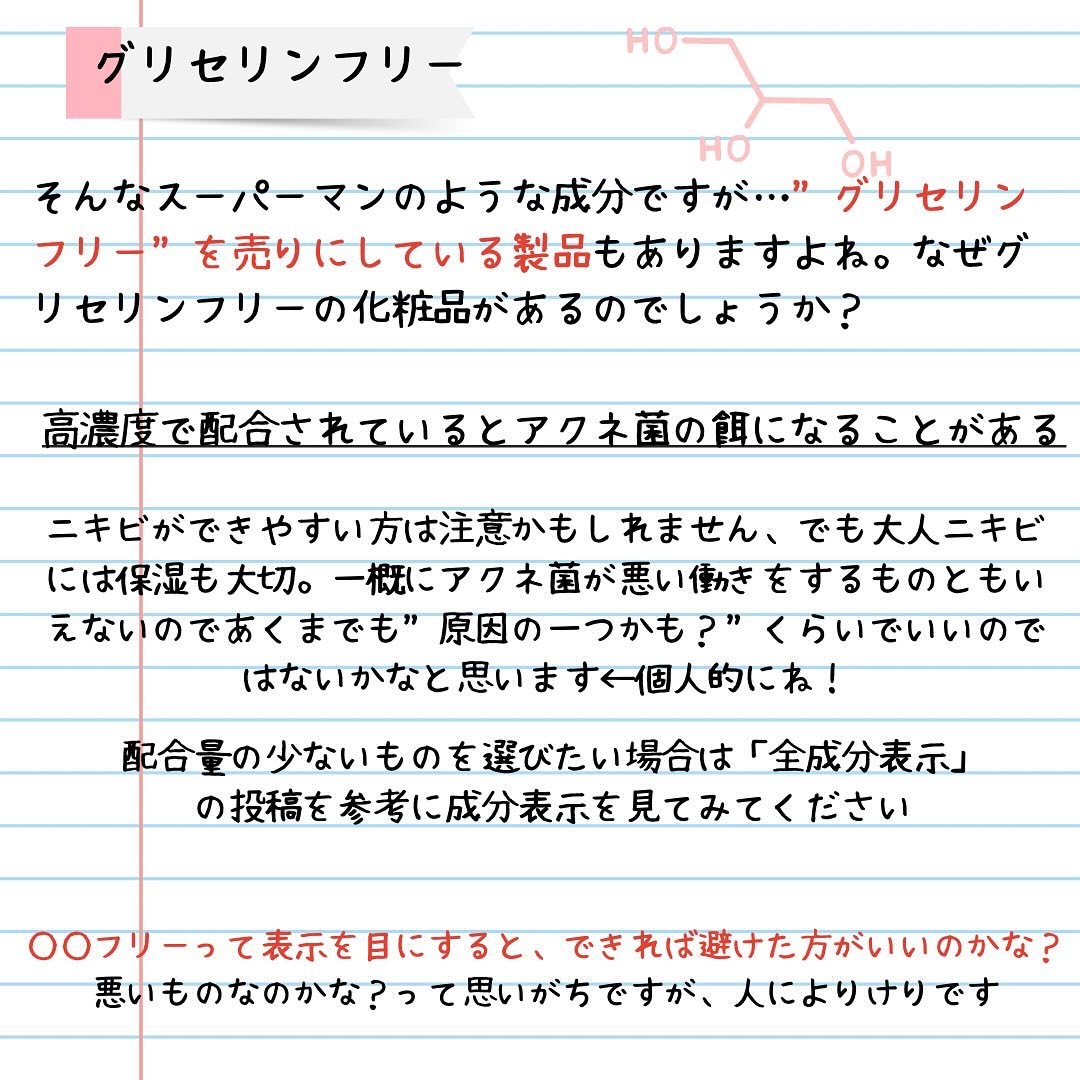 グリセリンフリー
HO
HO
OH
そんなスーパーマンのような成分ですが…”グリセリン
フリー”を売りにしている製品もありますよね。なぜグ
リセリンフリーの化粧品があるのでしょうか？
高濃度で配合されているとアクネ菌の餌になることがある
ニキビができやすい方は注意かもしれません、でも大人ニキビ
には保湿も大切。一概にアクネ菌が悪い働きをするものともい
えないのであくまでも”原因の一つかも？”くらいでいいので
はないかなと思います←個人的にね！
配合量の少ないものを選びたい場合は「全成分表示」
の投稿を参考に成分表示を見てみてください
〇〇フリーって表示を目にすると、できれば避けた方がいいのかな？
悪いものなのかな？って思いがちですが、人によりけりです